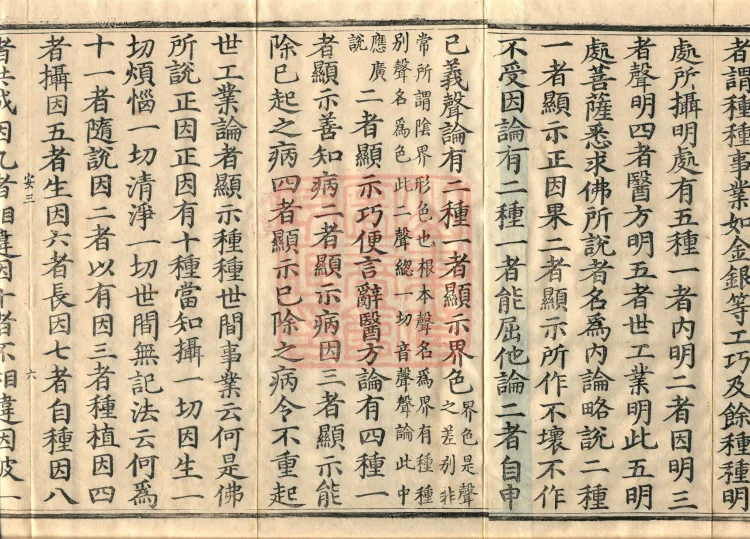 者謂種種事業如金銀等工巧及餘種種明
處所攝明處有五種一者內明二者因明三
者聲明四者醫方明五者世工業明此五明
處菩薩悉求佛所說者名為內論略說二種
一者顯示正因果二者顯示所作不壞不作
不受因論有二種一者能屈他論二者自申
己義聲論有二種一者顯示界色界色是聲之差別非
常所謂陰界形色也根本聲名為界有種種
別聲名為色此二聲總一切音聲聲論此中
應廣說二者顯示巧便言辭醫方論有四種一
者顯示善知病二者顯示病因三者顯示能
除已起之病四者顯示已除之病令不重起
世工業論者顯示種種世間事業云何是佛
所說正因正因有十種當知攝一切因生一
切煩惱一切清淨一切世間無記法云何為
十一者隨說因二者以有因三者種植因四
者攝因五者生因六者長因七者自種因八
安三 六
者共成因九者相違因十者不相違因彼一